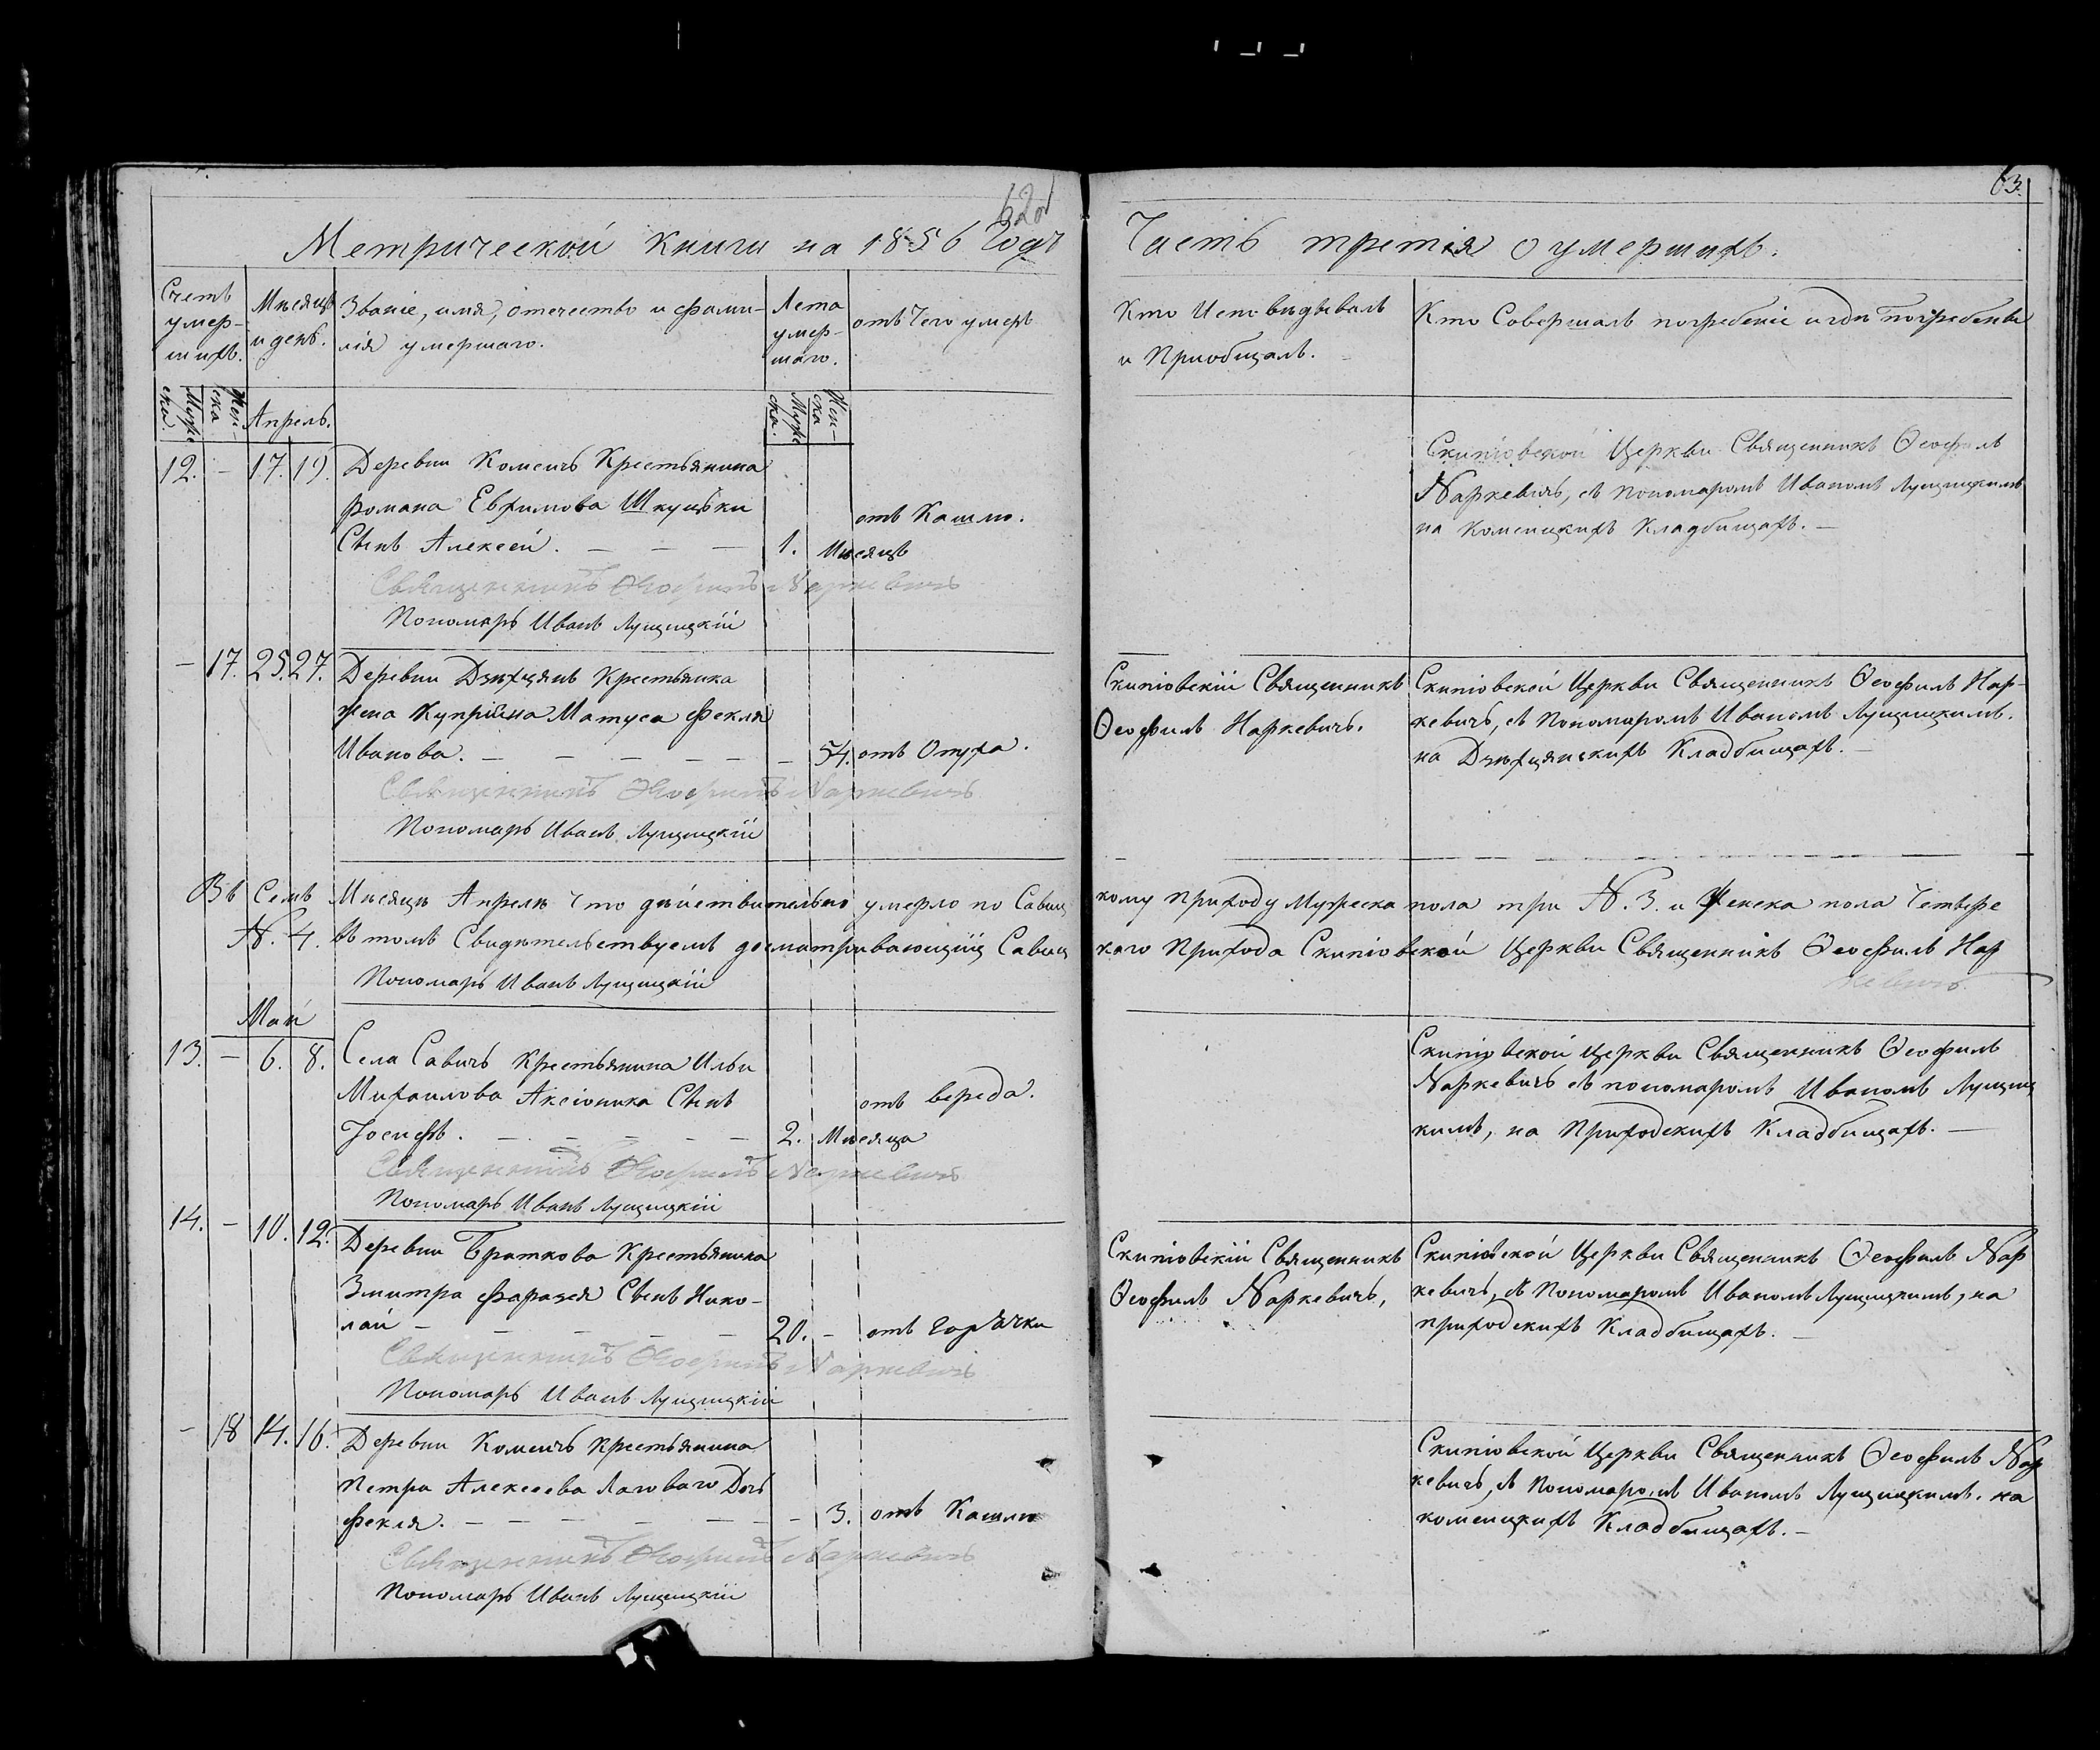 62об
63.
Метрической книги на 1856 годъ
Часть третія о умершихъ.
Счетъ умер-шихъ.
Мѣсяцъ и день.
Званіе, имя, отечество и фами-
лія умершаго.
Лета умер-шаго.
отъ чего умеръ
Кто Исповѣдывалъ
и Приобщалъ.
Кто Совершалъ погребеніе и гдѣ погребены
Муже ска.
Жен-ска
Апрель.
Муже ска.
Жен-ска
12. — 17. 19. Деревни Коменъ Крестьянина
романа Евфимова Шкуцьки
отъ Кашлю.
Сынъ Алексей. — — — 1. Мѣсяцъ
Священникъ Ѳеофилъ Наркевичъ
Пономаръ Иванъ Лущицкій
Скипіовской Церкви Священникъ Ѳеофилъ
Наркевичъ, съ пономаромъ Иваномъ Лущицкимъ
на Коменцкихъ Кладбищахъ. —
— 17. 25. 27. Деревни Дзѣхцянъ Крестьянина
жена Купріяна Матуса Фекла
Иванова. — — — — — — 54. отъ Опуха.
Священникъ Ѳеофилъ Наркевичъ
Пономаръ Иванъ Лущицкій
Скипіовскій Священникъ
Ѳеофилъ Наркевичъ.
Скипіовской Церкви Священникъ Ѳеофилъ Нар-
кевичъ, съ Пономаромъ Иваномъ Лущицкимъ.
на Дзѣхцянскихъ Кладбищахъ. —
Въ Семъ Мѣсяцѣ Апрелѣ что дѣйствительно умерло по Савиц
кому приходу Мужеска пола три N. 3. и Женска пола Четыре
N. 4. въ томъ Свидѣтельствуемъ досматривающій Савиц
каго Прихода Скипіовской Церкви Священникъ Ѳеофилъ Нар
кевичъ
Пономаръ Иванъ Лущицкій
Май
13. — 6. 8. Села Савичъ Крестьянина Ильи
Михаилова Аксіоника Сынъ
отъ вереда.
Іосифъ. — — — — — 2. Мѣсяца
Священникъ Ѳеофилъ Наркевичъ
Пономаръ Иванъ Лущицкій
Скипіовской Церкви Священникъ Ѳеофилъ
Наркевичъ съ пономаромъ Иваномъ Лущиц
кимъ, на Приходскихъ Кладбищахъ. —
14. — 10. 12. Деревни Браткова Крестьянина
Змитра Фаразея Сынъ Нико-
лай — — — — — 20. — отъ Горячки
Священникъ Ѳеофилъ Наркевичъ
Пономаръ Иванъ Лущицкій
Скипіовскій Священникъ
Ѳеофилъ Наркевичъ,
Скипіовской Церкви Священникъ Ѳеофилъ Нар
кевичъ, съ Пономаромъ Иваномъ Лущицкимъ, на
приходскихъ Кладбищахъ. —
— 18 14. 16. Деревни Коменъ Крестьянина
Петра Алексеева Лаговаго Дочь
Фекля. — — — — — — — 3. отъ Кашлю
Священникъ Ѳеофилъ Наркевичъ
Пономаръ Иванъ Лущицкій
Скипіовской Церкви Священникъ Ѳеофилъ Нар
кевичъ, съ Пономаромъ Иваномъ Лущицкимъ. на
коменцкихъ Кладбищахъ. —